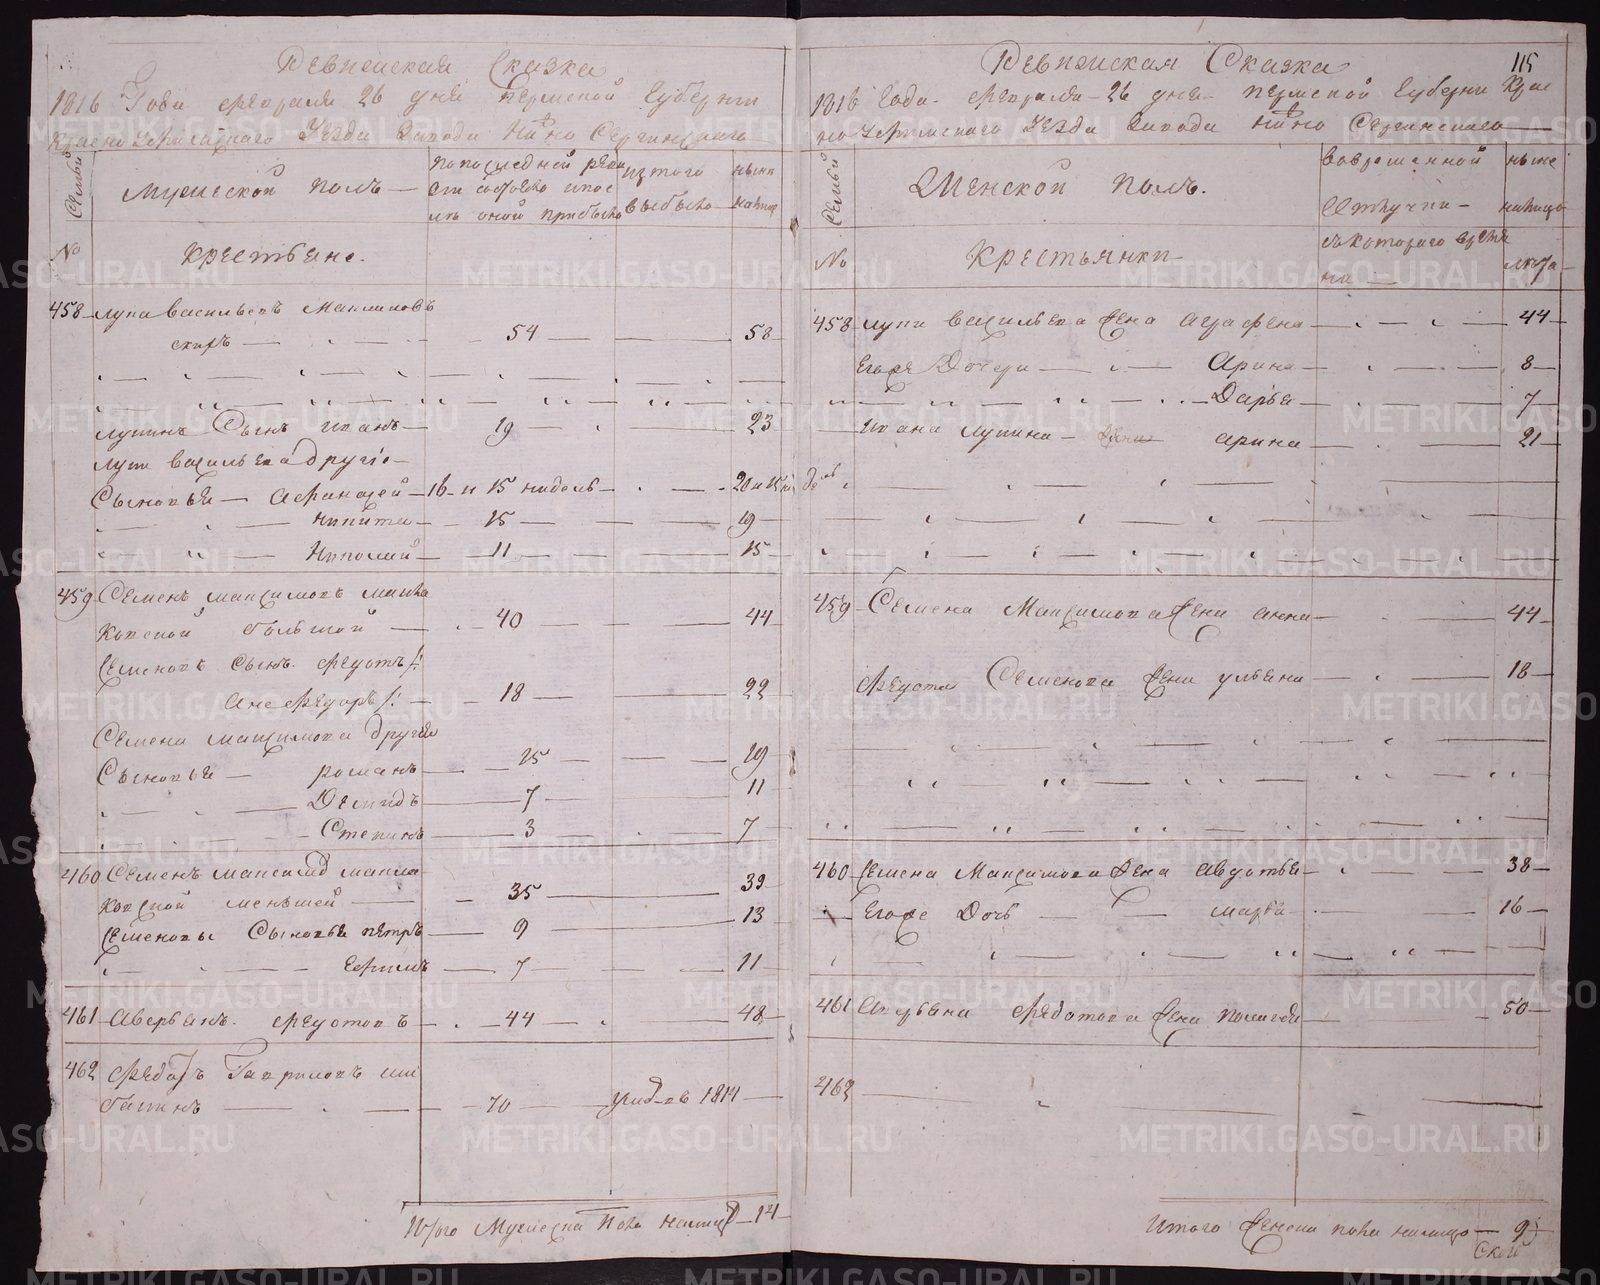 Ревизская Сказка
1816 Года февраля 26 дня Пермской Губернии
Красноуфимскаго Уезда Завода Нижно Сергинскаго
Семьи
Мужеской полъ
По последней ревизии состояло и после оной прибыло
Из того выбыло
Ныне налицо
№
Крестьяне.
458 Лупа Васильевъ
54 58
Лупинъ Сынъ Иванъ 19 23
Лупы Васильева другie
Сыновья Афанасей 16 и 15 недель
Никита 15 19
11 15
459 Семенъ Максимовъ
большой 40 44
Семеновъ Сынъ Федотъ
А не Федоръ 18 22
Семена Максимова другия
Сыновья Романъ 15 19
Демидъ 7 11
Степанъ 3 7
460 Семенъ
меньшей 35 39
Семеновы Сыновья Петръ 9 13
Ефимъ 7 11
461 Аверьянъ Федотовъ 44 48
462 Федотъ Гавриловъ
70 1814
Итого Мужеска пола налицо 14
115
Ревизская Сказка
1816 Года февраля 26 дня Пермской Губерни Крас
ноуфимскаго Уезда Завода Нижно Сергинскаго
Семьи
Женской полъ.
Во временной отлучки
с котораго времяни
Ныне налицо
лета
№
Крестьянки
458 Лупы Васильева жена Аграфена 44
Его же Дочери Арина 8
Дарья 7
Ивана Лупина жена Арина 21
459 Семена Максимова жена Анна 44
Федота Семенова жена Ульяна 18
460 Семена Максимова жена Авдотья 38
Его же Дочь Марфа 16
461 Аверьяна Федотова жена 50
462
Итого женска пола налицо 9